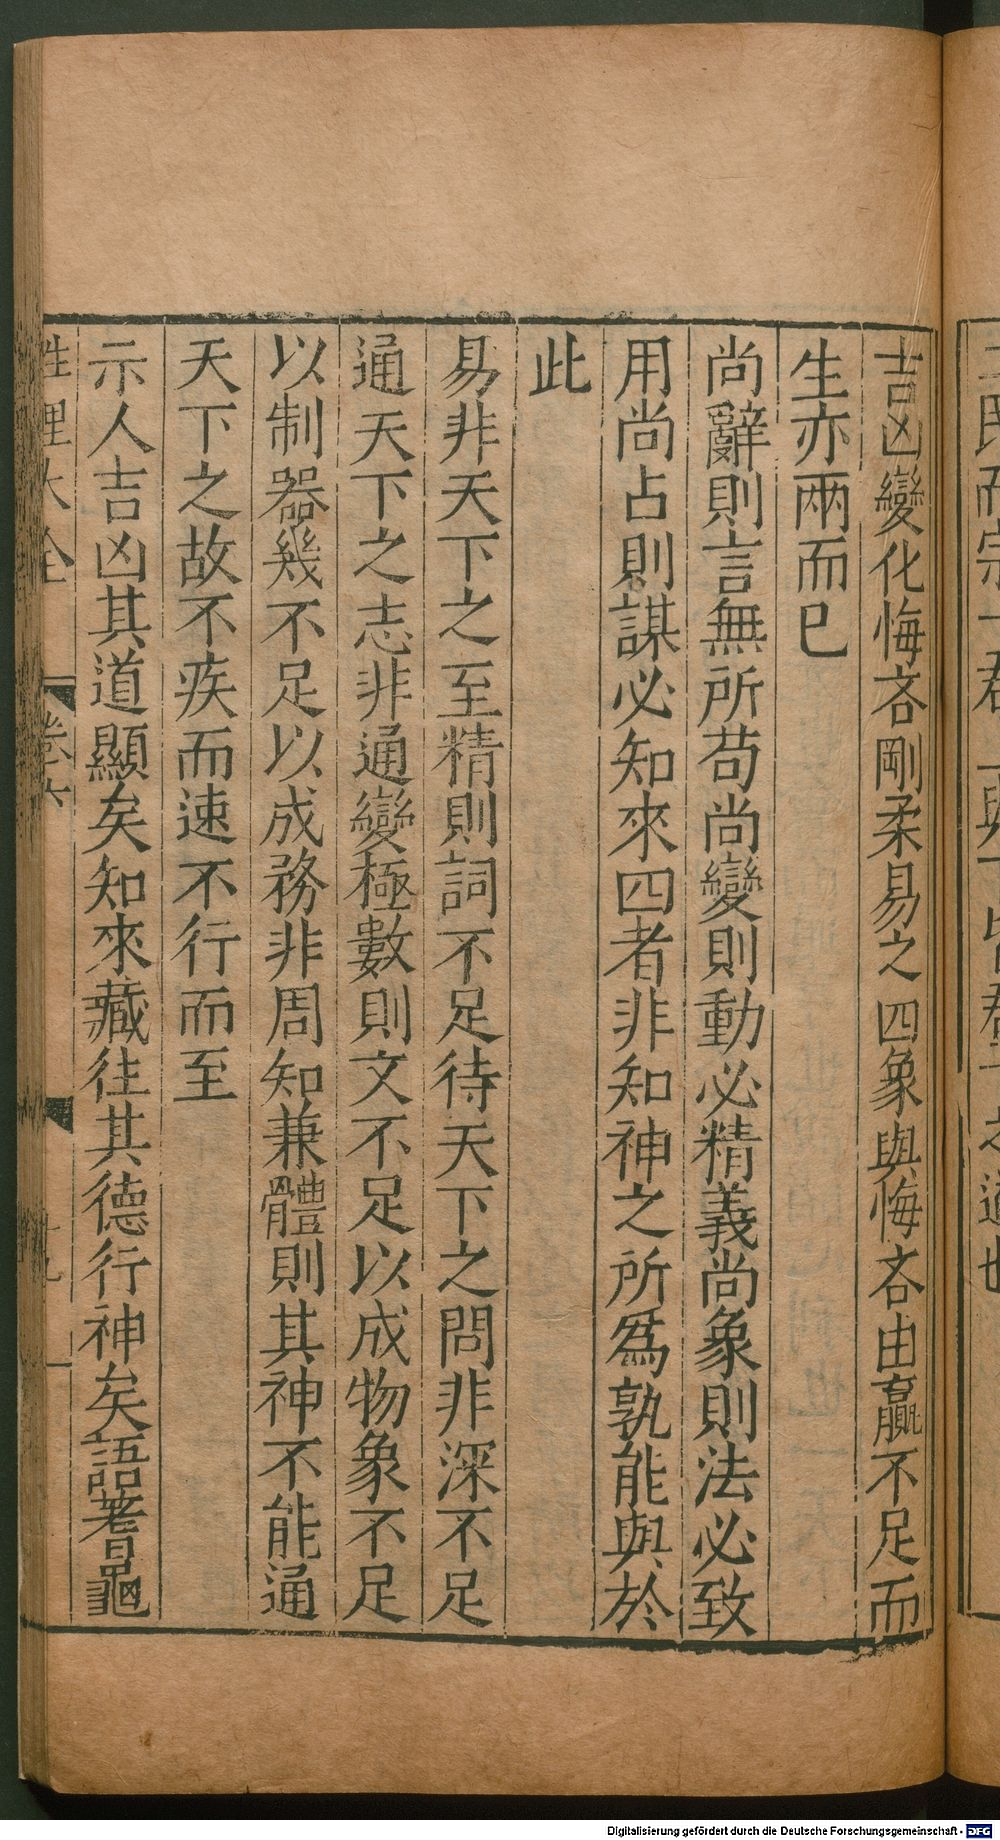 吉凶變化悔吝剛柔易之四象與悔吝由贏不足而
生亦兩而已
尚辭則言無所苟尚變則動必精義尚象則法必致
用尚占則謀必知來四者非知神之所爲孰能與於
此
易非天下之至精則詞不足待天下之問非深不足
通天下之志非通變極數則文不足以成物象不足
以制器幾不足以成務非周知兼體則其神不能通
天下之故不疾而速不行而至
示人吉凶其道顯矣知來藏往其德行神矣語蓍龜
性理大全 卷六 十九
Digitalisierung gefördert durch die Deutsche Forschungsgemeinschaft - DFG